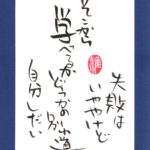 失敗は
いややけど
そこから
学べるか
どうかの別れ道
自分しだい